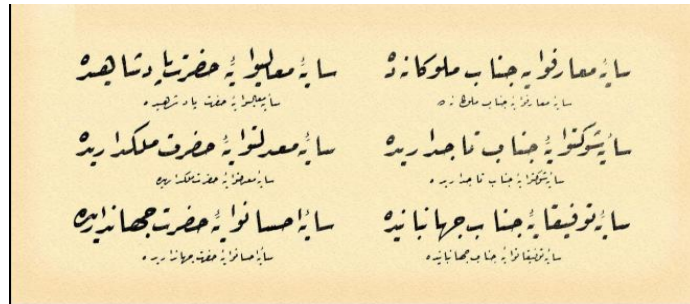 سایۀ معارفوایۀ جناب ملوکانه ده
سایۀ معارفوایۀ جناب ملوکانه ده
سایۀ شوکتوایۀ جناب تاجداریده
سایۀ شوکتوایۀ جناب تاجداریده
سایۀ توفیقایۀ جناب جهانبانیده
سایۀ توفیقاتوایۀ جناب جهانبانیده
سایۀ معالیوایۀ حضرت پادشاهیده
سایۀ معالیوایۀ حضرت پادشاهیده
سایۀ معدلتوایۀ حضرت ملکداریده
سایۀ معدلتوایۀ حضرت ملکداریده
سایۀ احسانوایۀ حضرت جهانداریده
سایۀ احسانوایۀ حضرت جهانداریده